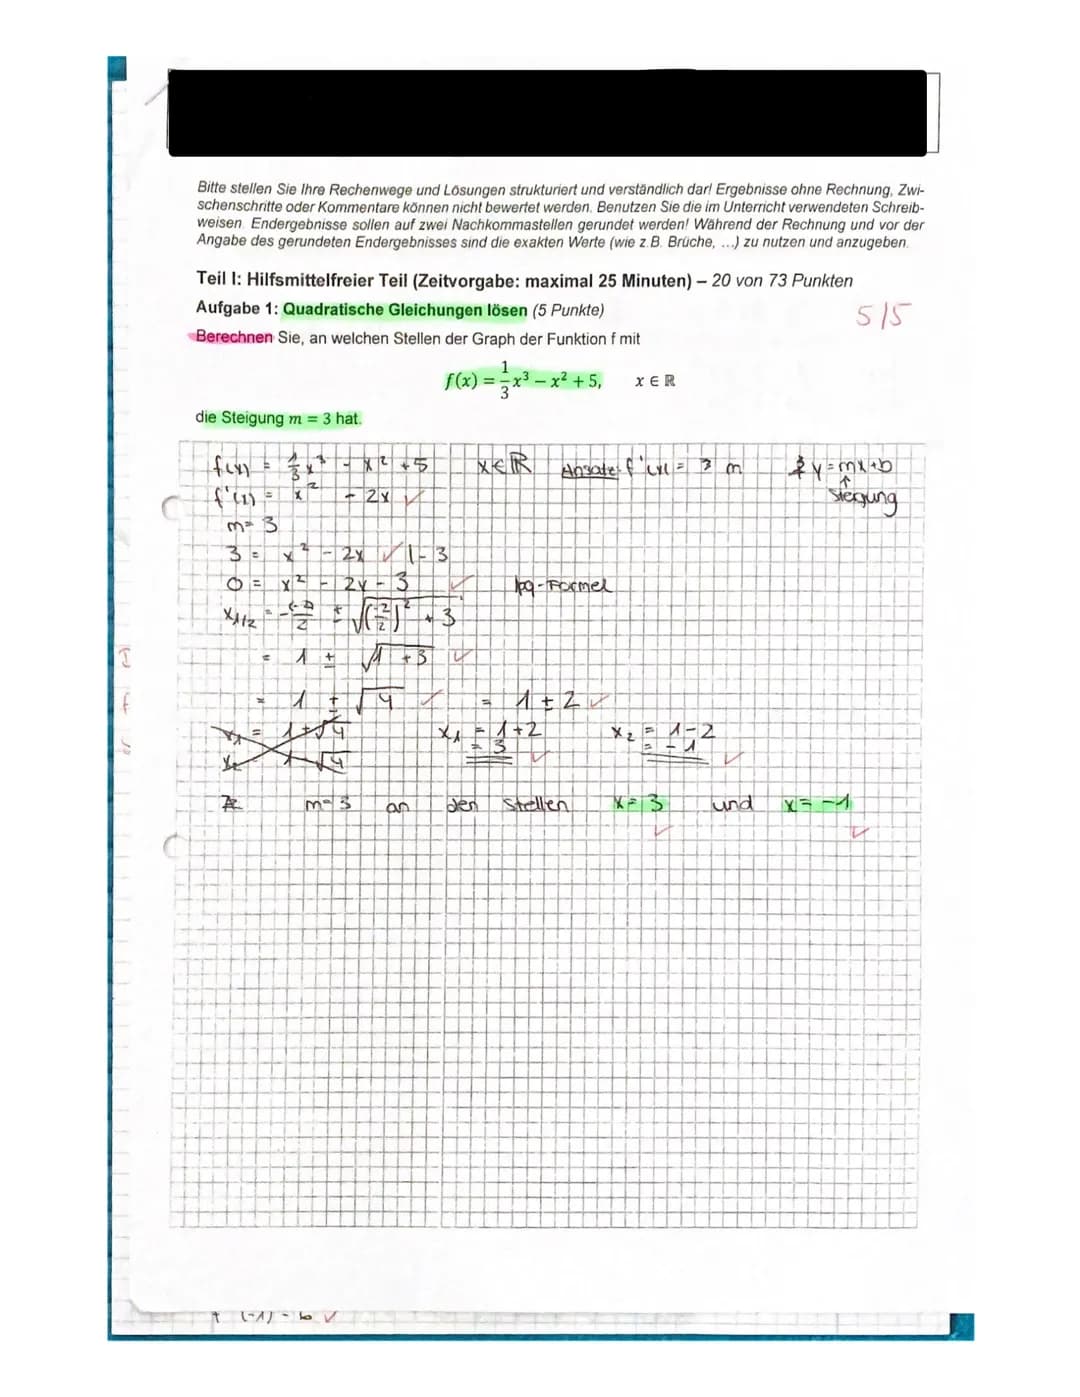 Bitte stellen Sie Ihre Rechenwege und Lösungen strukturiert und verständlich dar! Ergebnisse ohne Rechnung, Zwi-
schenschritte oder Kommentare können nicht bewertet werden. Benutzen Sie die im Unterricht verwendeten Schreib-
weisen. Endergebnisse sollen auf zwei Nachkommastellen gerundet werden! Während der Rechnung und vor der
Angabe des gerundeten Endergebnisses sind die exakten Werte (wie z.B. Brüche, ...) zu nutzen und anzugeben.
Teil I: Hilfsmittelfreier Teil (Zeitvorgabe: maximal 25 Minuten) – 20 von 73 Punkten
Aufgabe 1: Quadratische Gleichungen lösen (5 Punkte)
5/5
Berechnen Sie, an welchen Stellen der Graph der Funktion f mit
f(x) = 1/3 x³ – x² + 5, x ∈ ℝ
die Steigung m = 3 hat.
f(x) = 1/3 x³ - x² + 5 x ∈ ℝ Ansatz: f'(x) = m y = mx+b
f'(x) = x² - 2x ✓ ↑ Steigung
m = 3
3 = x² - 2x ✓ | - 3
0 = x² - 2x - 3 ✓ pq-Formel
x1/2 = -(-2)/2 ± √((-2/2)² + 3)
= 1 ± √(1 + 3) ✓
= 1 ± √4 ✓ = 1 ± 2 ✓
x1 = 1 + √4 x1 = 1 + 2 x2 = 1 - 2
= 3 ✓ = -1 ✓
x2 1 - √4
m = 3 an den Stellen x = 3 und x = -1
✓ ✓
(-1) = 6 ✓